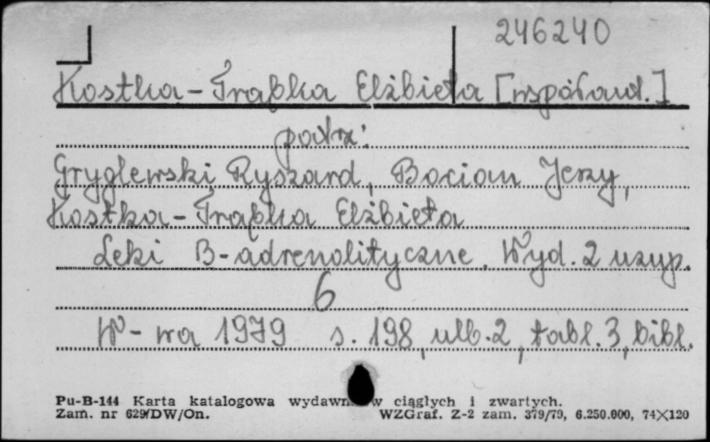 246240
Kostka-Trąbka Elżbieta [współaut.]
patrz:
Gryglewski Ryszard, Bocian Jerzy,
Kostka-Trąbka Elżbieta
Leki B-adrenolityczne. Wyd. 2 uzup.
6
W-wa 1979 s. 198, ulb. 2, tabl. 3, bibl.
Pu-B-144 Karta katalogowa wydawn w ciągłych i zwartych.
Zam. nr 629/DW/On. WZGraf. Z-2 zam. 379/79, 6.250.000, 74×120